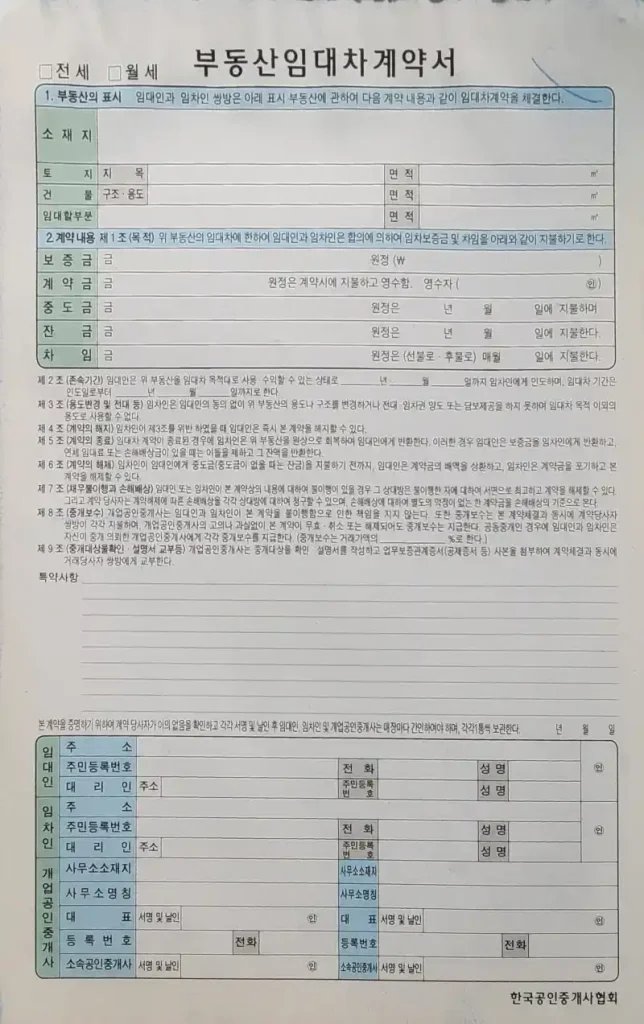 □전세 □월세 부동산임대차계약서
1. 부동산의 표시 임대인과 임차인 쌍방은 아래 표시 부동산에 관하여 다음 계약 내용과 같이 임대차계약을 체결한다.
소재지
토지 지목 면적 ㎡
건물 구조·용도 면적 ㎡
임대할부분 면적 ㎡
2. 계약내용 제1조(목적) 위 부동산의 임대차에 한하여 임대인과 임차인은 합의에 의하여 임차보증금 및 차임을 아래와 같이 지불하기로 한다.
보증금 금 원정 (₩ )
계약금 금 원정은 계약시에 지불하고 영수함. 영수자 ( ㊞)
중도금 금 원정은 년 월 일에 지불하며
잔금 금 원정은 년 월 일에 지불한다.
차임 금 원정은 (선불로·후불로) 매월 일에 지불한다.
제2조 (존속기간) 임대인은 위 부동산을 임대차 목적대로 사용·수익할 수 있는 상태로 ____년 ____월 ____일까지 임차인에게 인도하며, 임대차 기간은
인도일로부터 ____년 ____월 ____일까지로 한다.
제3조 (용도변경 및 전대 등) 임차인은 임대인의 동의 없이 위 부동산의 용도나 구조를 변경하거나 전대·임차권 양도 또는 담보제공을 하지 못하며 임대차 목적 이외의
용도로 사용할 수 없다.
제4조 (계약의 해지) 임차인이 제3조를 위반 하였을 때 임대인은 즉시 본 계약을 해지할 수 있다.
제5조 (계약의 종료) 임대차 계약이 종료된 경우에 임차인은 위 부동산을 원상으로 회복하여 임대인에게 반환한다. 이러한 경우 임대인은 보증금을 임차인에게 반환하고,
연체 임대료 또는 손해배상금이 있을 때는 이들을 제하고 그 잔액을 반환한다.
제6조 (계약의 해제) 임차인이 임대인에게 중도금(중도금이 없을 때는 잔금)을 지불하기 전까지, 임대인은 계약금의 배액을 상환하고, 임차인은 계약금을 포기하고 본 계
약을 해제할 수 있다.
제7조 (채무불이행과 손해배상) 임대인 또는 임차인이 본 계약상의 내용에 대하여 불이행이 있을 경우 그 상대방은 불이행한 자에 대하여 서면으로 최고하고 계약을 해제할 수 있다.
그리고 계약 당사자는 계약해제에 따른 손해배상을 각각 상대방에 대하여 청구할 수 있으며, 손해배상에 대하여 별도의 약정이 없는 한 계약금을 손해배상의 기준으로 본다.
제8조 (중개보수) 개업공인중개사는 임대인과 임차인이 본 계약을 불이행함으로 인한 책임을 지지 않는다. 또한 중개보수는 본 계약체결과 동시에 계약당사자
쌍방이 각각 지불하며, 개업공인중개사의 고의나 과실없이 본 계약이 무효·취소 또는 해제되어도 중개보수는 지급한다. 공동중개인 경우에 임대인과 임차인은
자신이 중개 의뢰한 개업공인중개사에게 각각 중개보수를 지급한다. (중개보수는 거래가액의 ____%로 한다.)
제9조 (중개대상물확인·설명서 교부등) 개업공인중개사는 중개대상물 확인·설명서를 작성하고 업무보증관계증서(공제증서 등) 사본을 첨부하여 계약체결과 동시에
거래당사자 쌍방에게 교부한다.
특약사항
본 계약을 증명하기 위하여 계약 당사자가 이의 없음을 확인하고 각각 서명 및 날인 후 임대인, 임차인 및 개업공인중개사는 매장마다 간인하여야 하며, 각각 1통씩 보관한다. 년 월 일
임대인
주소 ㊞
주민등록번호 전화 성명
대리인 주소 주민등록번호 성명
임차인
주소 ㊞
주민등록번호 전화 성명
대리인 주소 주민등록번호 성명
개업공인중개사
사무소소재지 사무소소재지
사무소명칭 사무소명칭
대표 서명 및 날인 ㊞ 대표 서명 및 날인 ㊞
등록번호 전화 등록번호 전화
소속공인중개사 서명 및 날인 ㊞ 소속공인중개사 서명 및 날인 ㊞
한국공인중개사협회